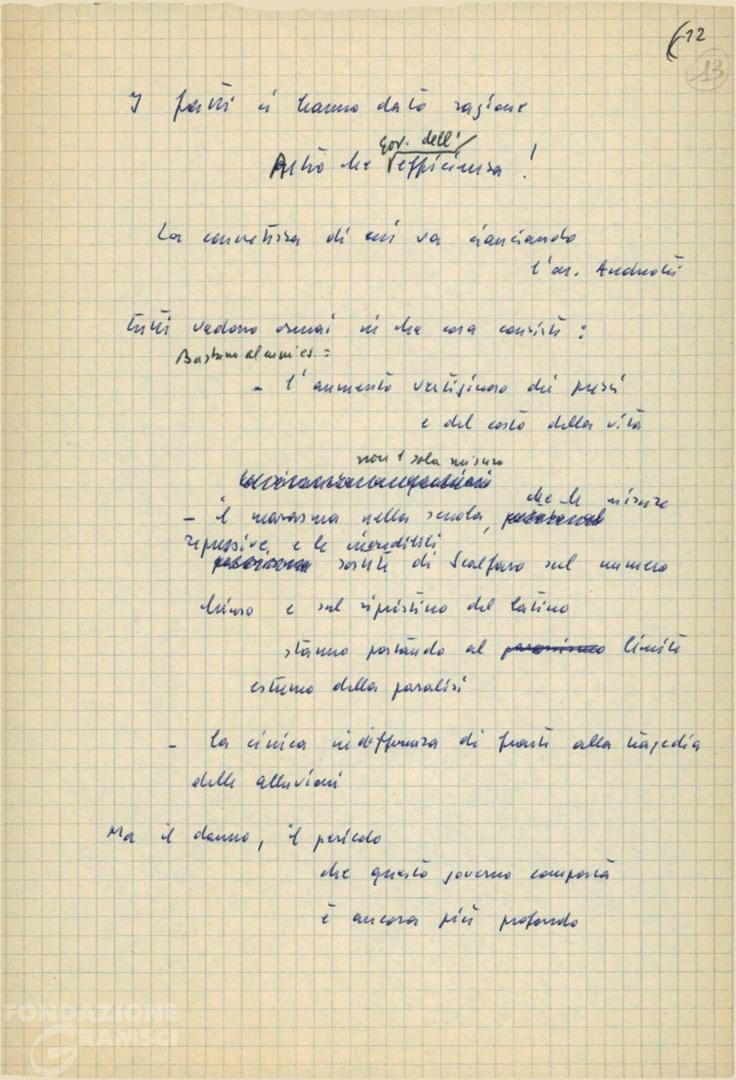 (12
13
I fatti ci hanno dato ragione
gov. dell'
Altro che efficienza !
La concretezza di cui va cianciando
l'on. Andreotti
tutti vedono ormai in che cosa consiste :
Bastano alcuni es. =
- l'aumento vertiginoso dei prezzi
e del costo della vita
non 1 sola misura
che le misure
- il marasma nella scuola,
repressive e le incredibili
sortite di Scalfaro sul numero
chiuso e sul ripristino del latino
stanno portando al limite
estremo della paralisi
- la cinica indifferenza di fronte alla tragedia
delle alluvioni
Ma il danno, il pericolo
che questo governo comporta
è ancora più profondo
FONDAZIONE
GRAMSCI